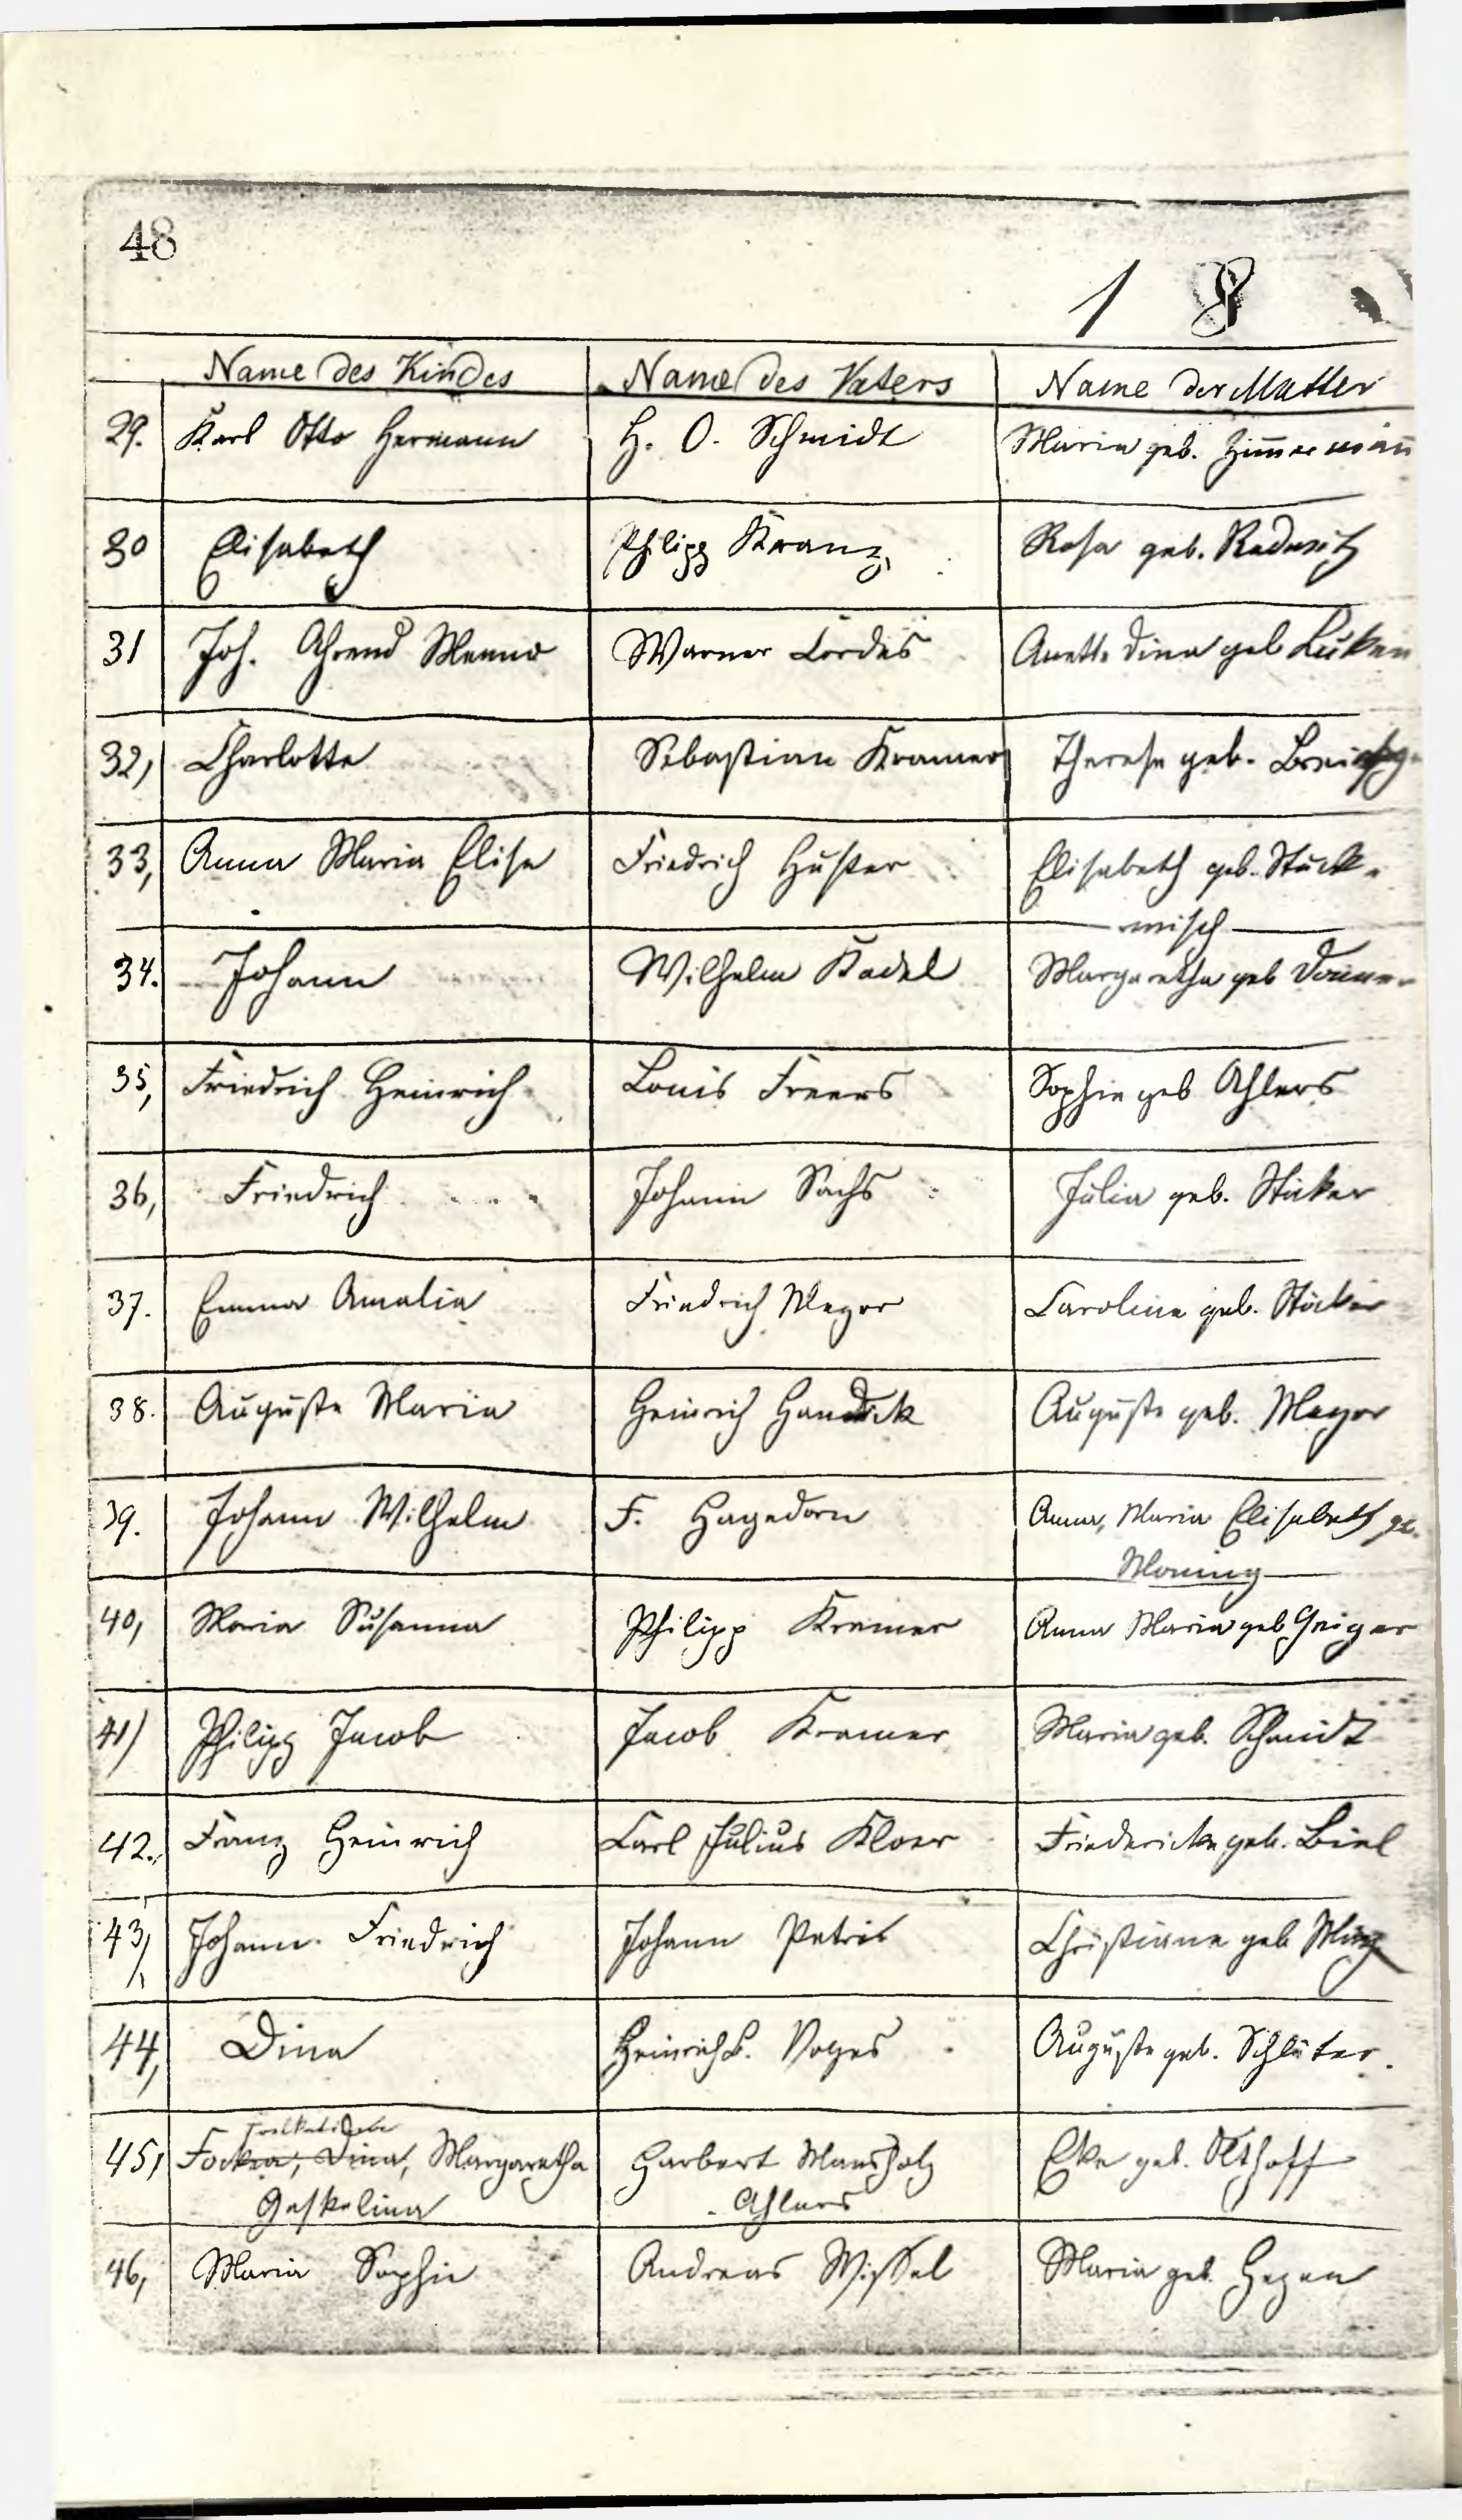 48
1 8
Name des Kindes Name des Vaters Name der Mutter
29. Karl Otto Hermann H. O. Schmidt Maria geb. Zim̅erman̅
30 Elisabeth Philipp Kranz Rosa geb.
31 Joh. Ahrend Menno Warner Cordes Anette Dina geb Lüken
32, Charlotte Sebastian Kramer Therese geb.
33, Anna Maria Elise Friedrich Huster Elisabeth geb. Stück-
misch
34. Johann Wilhelm Kadel Margaretha geb
35, Friedrich Heinrich Louis Freers Sophie geb Ahlers
36, Friedrich Johann Sachs Julia geb. Stüker
37. Emma Amalia Friedrich Meyer Caroline geb. Stöcker
38. Auguste Maria Heinrich Auguste geb. Meyer
39. Johann Wilhelm F. Hagedorn Anna, Maria Elisabeth ge.
Moning
40, Maria Susanna Philipp Kramer Anna Maria geb Geiger
41) Philipp Jacob Jacob Kramer Maria geb. Schmidt
42. Franz Heinrich Carl Julius Kloer Friedericke geb. Biel
43, Johann Friedrich Johann Petris Christiane geb
44, Dina Heinrich B. Voges Auguste geb. Schlüter.
45, Focka, Dina, Margaretha Harbert Mansholz Eke geb. Olthoff
Geskelina Ahlers
46, Maria Sophie Andreas Wissel Maria geb. Hegen